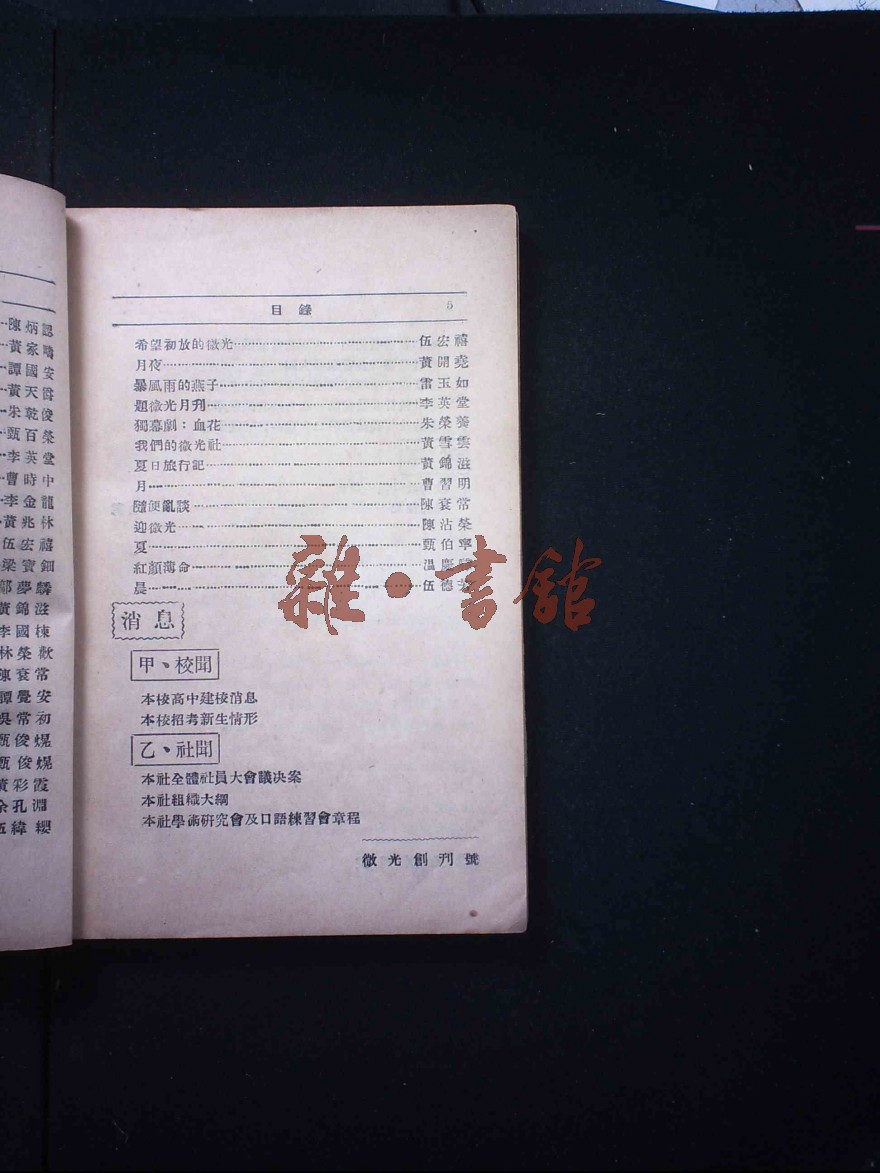 陳炳認
黃家疇
譚國安
黃天爵
朱乾俊
甄百榮
李英堂
曹時中
李金龍
黃兆林
伍宏禧
梁寶鈿
鄺夢麟
黃錦滋
李國棟
林榮歡
陳袞常
譚覺安
吳常初
甄俊焜
甄俊焜
黃彩霞
余孔淵
伍緯纓
目錄 5
希望初放的微光……伍宏禧
月夜……黃開堯
暴風雨的燕子……雷玉如
題微光月刊……李英堂
獨幕劇：血花……朱榮養
我們的微光社……黃雪雲
夏日旅行記……黃錦滋
月……曹習明
隨便亂談……陳袞常
迎微光……陳沾榮
夏……甄伯寧
紅顏薄命……溫慶
晨……伍德
雜·書館
消息
甲、校聞
本校高中建校消息
本校招考新生情形
乙、社聞
本社全體社員大會議决案
本社組織大綱
本社學術研究會及口語練習會章程
微光創刊號